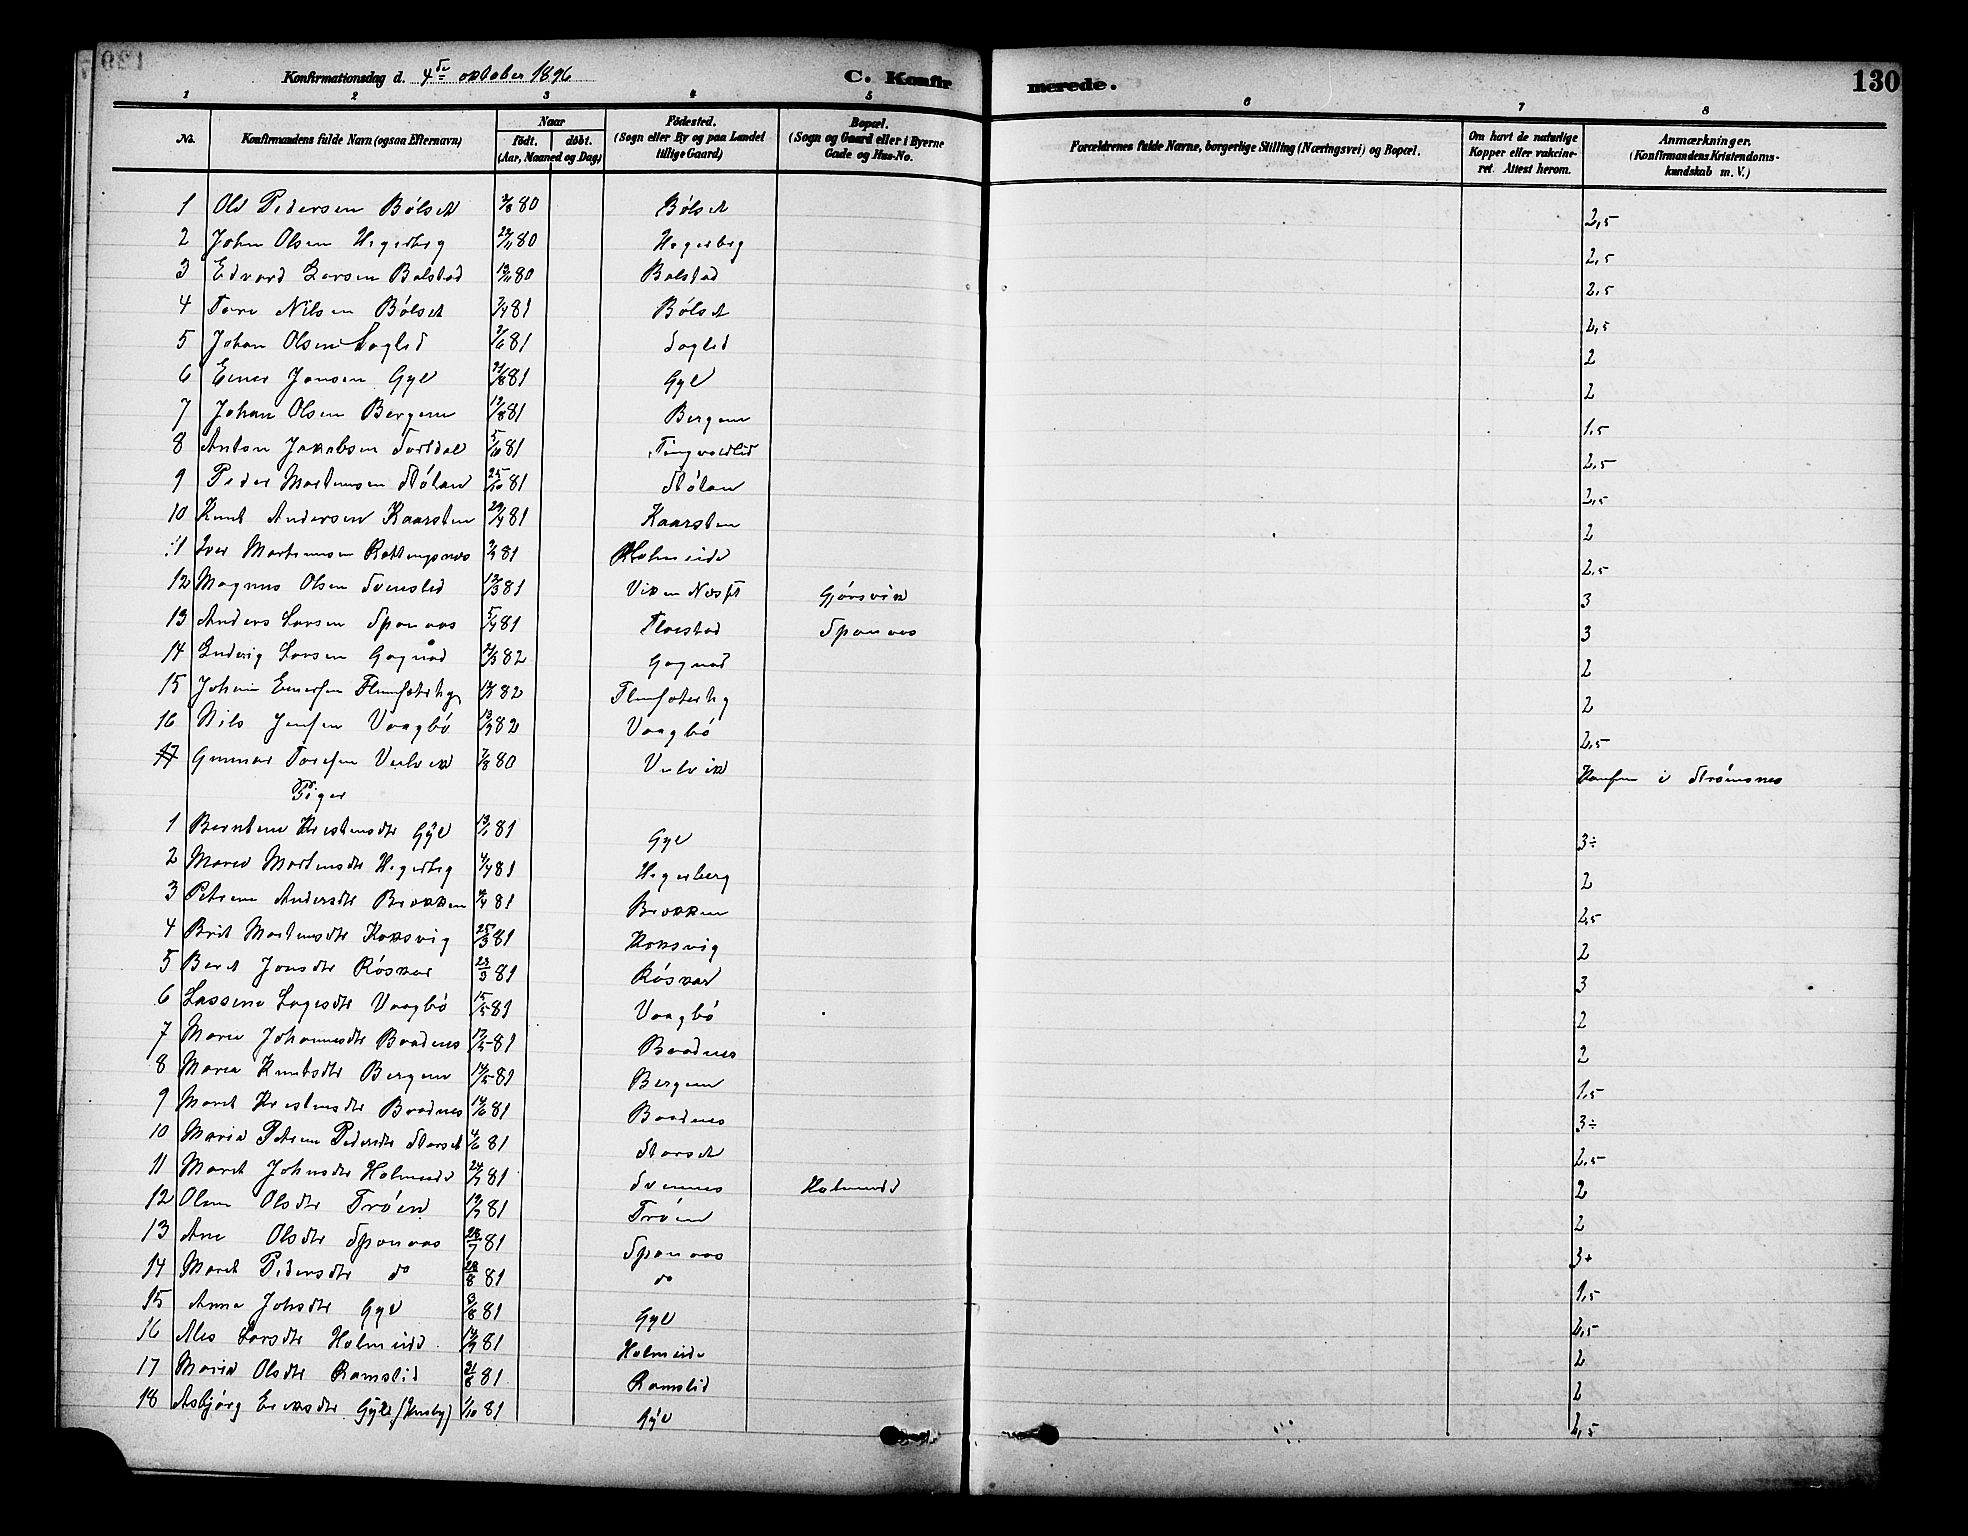 Konfirmationsdag d. 4de oktober 1896
C. Konfirmerede.
130
1 2 3 4 5 6 7 8
No.
Konfirmandens fulde Navn (ogsaa Efternavn)
Naar
født. døbt.
(Aar, Maaned og Dag)
Fødested.
(Sogn eller By og paa Landet
tillige Gaard)
Bopæl.
(Sogn og Gaard eller i Byerne
Gade og Hus-No.
Forældrenes fulde Navne, borgerlige Stilling (Næringsvei) og Bopæl.
Om havt de naturlige
Kopper eller vakcine-
ret. Attest herom.
Anmærkninger.
(Konfirmandens Kristendoms-
kundskab m. V.)
1 Ole Pedersen Bølset 80 Bølset 2,5
2 John Olsen Hegerberg 80 Hegerberg 2,5
3 Edvard Larsen Bolstad 80 Bolstad 2,5
4 Tore Nilsen Bølset 81 Bølset 2,5
5 Johan Olsen 81 2
6 Einer Jonsen Gyl 81 Gyl 2
7 Johan Olsen Bergem 81 Bergem 1,5
8 Anton Jakobsen 5/10 81 Tingvoldlid 2,5
9 Peder Mortensen Stølan 25/10 81 Stølan 2,5
10 Knut Andersen Kaarsten 81 Kaarsten 2
11 Iver Mortensen 81 Holmeide 2,5
12 Magnus Olsen Svenslid 81 Viken Gjørsvik 3
13 Anders Larsen Sponaas 81 Sponaas 3
14 Ludvig Larsen Gagnåd 82 Gagnad 2
15 82 2
16 Nils Jensen Vaagbø 82 Vaagbø 2,5
17 Gunnar Toresen Vulvik 80 Vulvik i Strømsnes
Piger
1 Berntine Kristensdtr Gyl 81 Gyl 3÷
2 Maret Mortensdtr Hegerberg 81 Hegerberg 2
3 Petrine Andersdtr Brekken 81 Brekken 2,5
4 Brit Mortensdtr Koksvig 25/3 81 Koksvig 2
5 Beret Jonsdtr Røskar 23/3 81 Røskar 3
6 Lassine Lagesdtr Vaagbø 15/5 81 Vaagbø 2
7 Marie Johannesdtr Boadnes 81 Boadnes 2
8 Maria Knutsdtr Bergem 81 Bergem 1,5
9 Maret Kristensdtr Boadnes 81 Boadnes 3÷
10 Maria Petrine Pedersdtr Storset 81 Storset 2,5
11 Maret Johnsdtr Holmeide 81 Svennes Holmeide 2
12 Oline Olsdtr Trøen 81 Trøen 2
13 Ane Olsdtr Sponaas 28/7 81 Sponaas 3+
14 Maret Pedersdtr do 28/8 81 do 1,5
15 Anna Johsdtr Gyl 81 Gyl 2,5
16 Ales Larsdtr Holmeide 81 Holmeide 2
17 Marie Olsdtr Ramslid 81 Ramslid 2
18 Asbjørg Eriksdtr Gyl (Husby) 1/10 81 Gyl 2,5